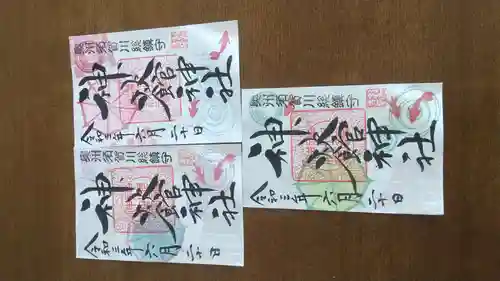 奥州須賀川総鎮守
神炊館神社
令和三年六月二十日
奥州須賀川総鎮守
神炊館神社
令和三年六月二十日
奥州須賀川総鎮守
神炊館神社
令和三年六月二十日